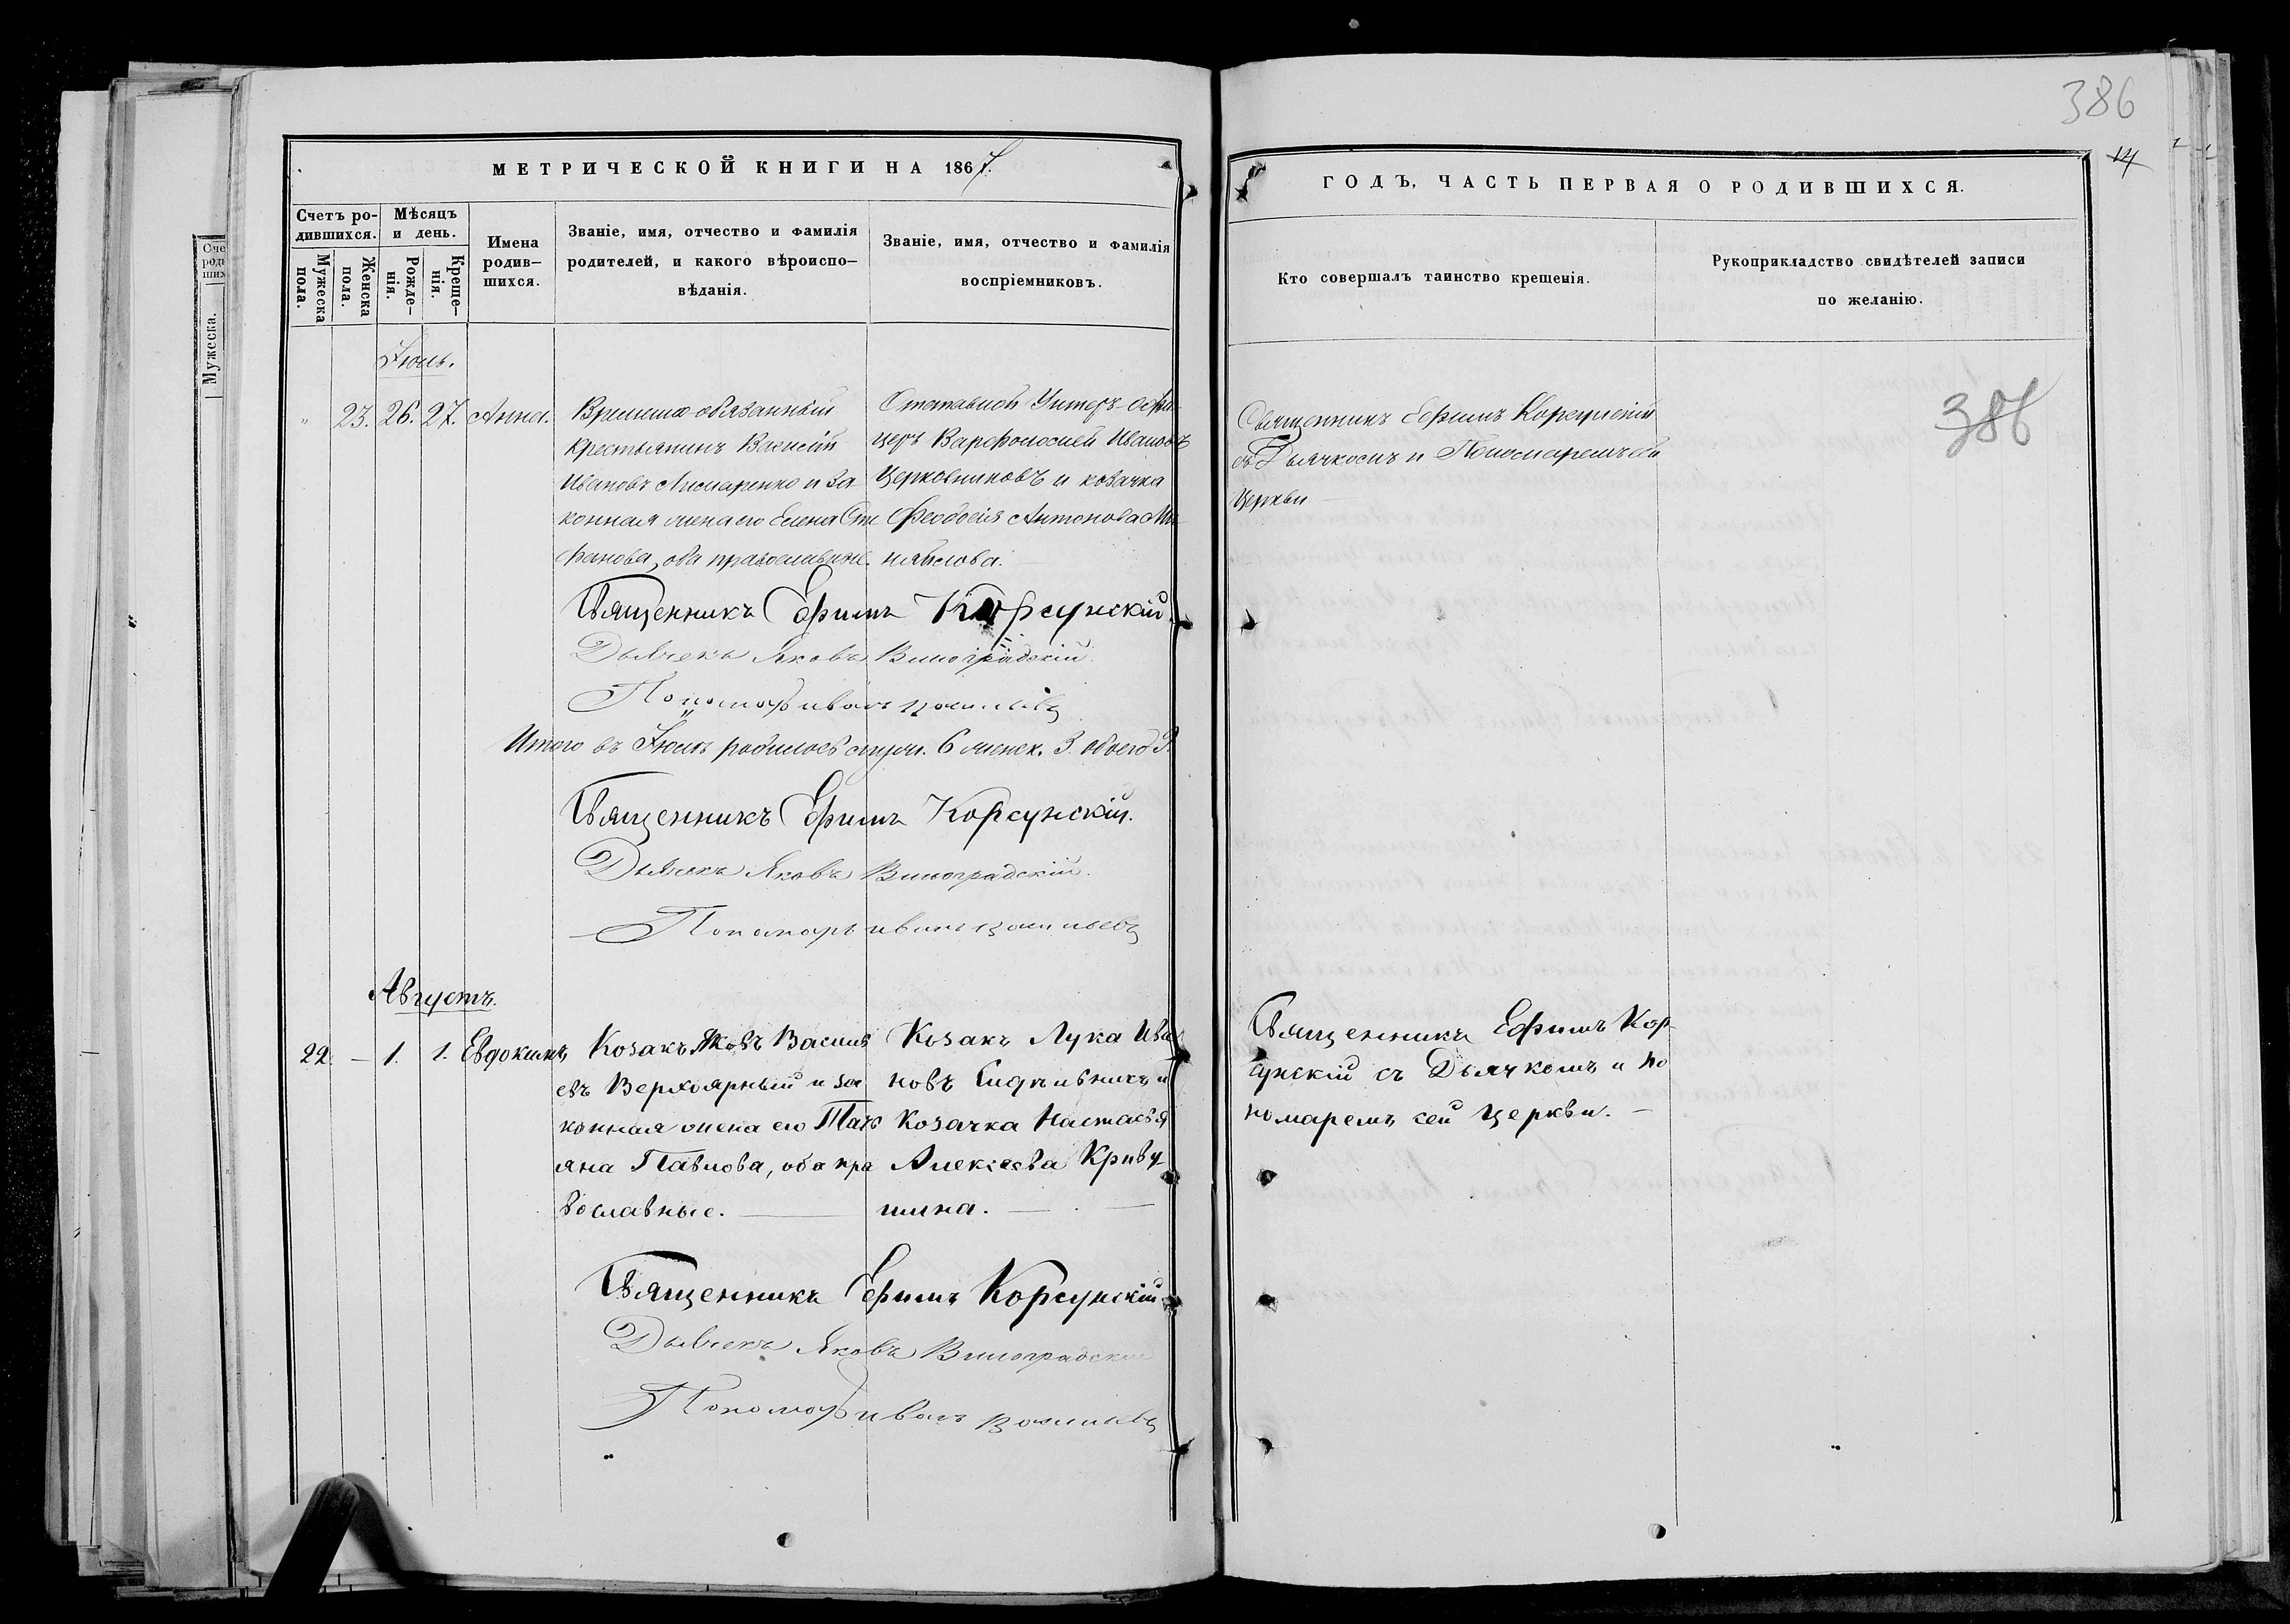 386
14
МЕТРИЧЕСКОЙ КНИГИ НА 1867.
ГОДЪ, ЧАСТЬ ПЕРВАЯ О РОДИВШИХСЯ.
Счетъ ро-
дившихся.
Мужеска
пола.
Женска
пола.
Мѣсяцъ
и день.
Рожде-
нія.
Креще-
нія.
Имена
родив-
шихся.
Званіе, имя, отчество и фамилія
родителей, и какого вѣроиспо-
вѣданія.
Званіе, имя, отчество и фамилія
воспріемниковъ.
Кто совершалъ таинство крещенія.
Рукоприкладство свидѣтелей записи
по желанію.
Мужеска.
Іюль.
" 23. 26. 27. Анна.
Временно-обязанный
крестьянинъ Василій
Ивановъ и за
конная жена его Елена Сте
фанова, оба православные.
Отставной Унтеръ-офи-
церъ Варфоломей Ивановъ
Церковниковъ и козачка
Феодосія Антонова
Священникъ Ефимъ Корсунскій
съ Дьячкомъ и Пономаремъ сей
Церкви
386
Священникъ Ефимъ Корсунскій.
Дьячекъ Яковъ Виноградскій.
Пономарь Иванъ Васильевъ
Итого въ Іюлѣ родилось муж. 6 женск. 3. обоего 9.
Священникъ Ефимъ Корсунскій.
Дьячекъ Яковъ Виноградскій.
Пономарь Иванъ Васильевъ
Августъ.
22. — 1. 1. Евдокимъ
Козакъ Яковъ Василь
евъ Верхоярный и за
конная жена его Тать
яна Павлова, оба пра
вославные.
Козакъ Лука Ива
новъ и
Козачка Настасья
Алексѣева Криву
шина.
Священникъ Ефимъ Кор-
сунскій съ Дьячкомъ и по
номаремъ сей церкви.
Священникъ Ефимъ Корсунскій
Дьячекъ Яковъ Виноградскій
Пономарь Иванъ Васильевъ